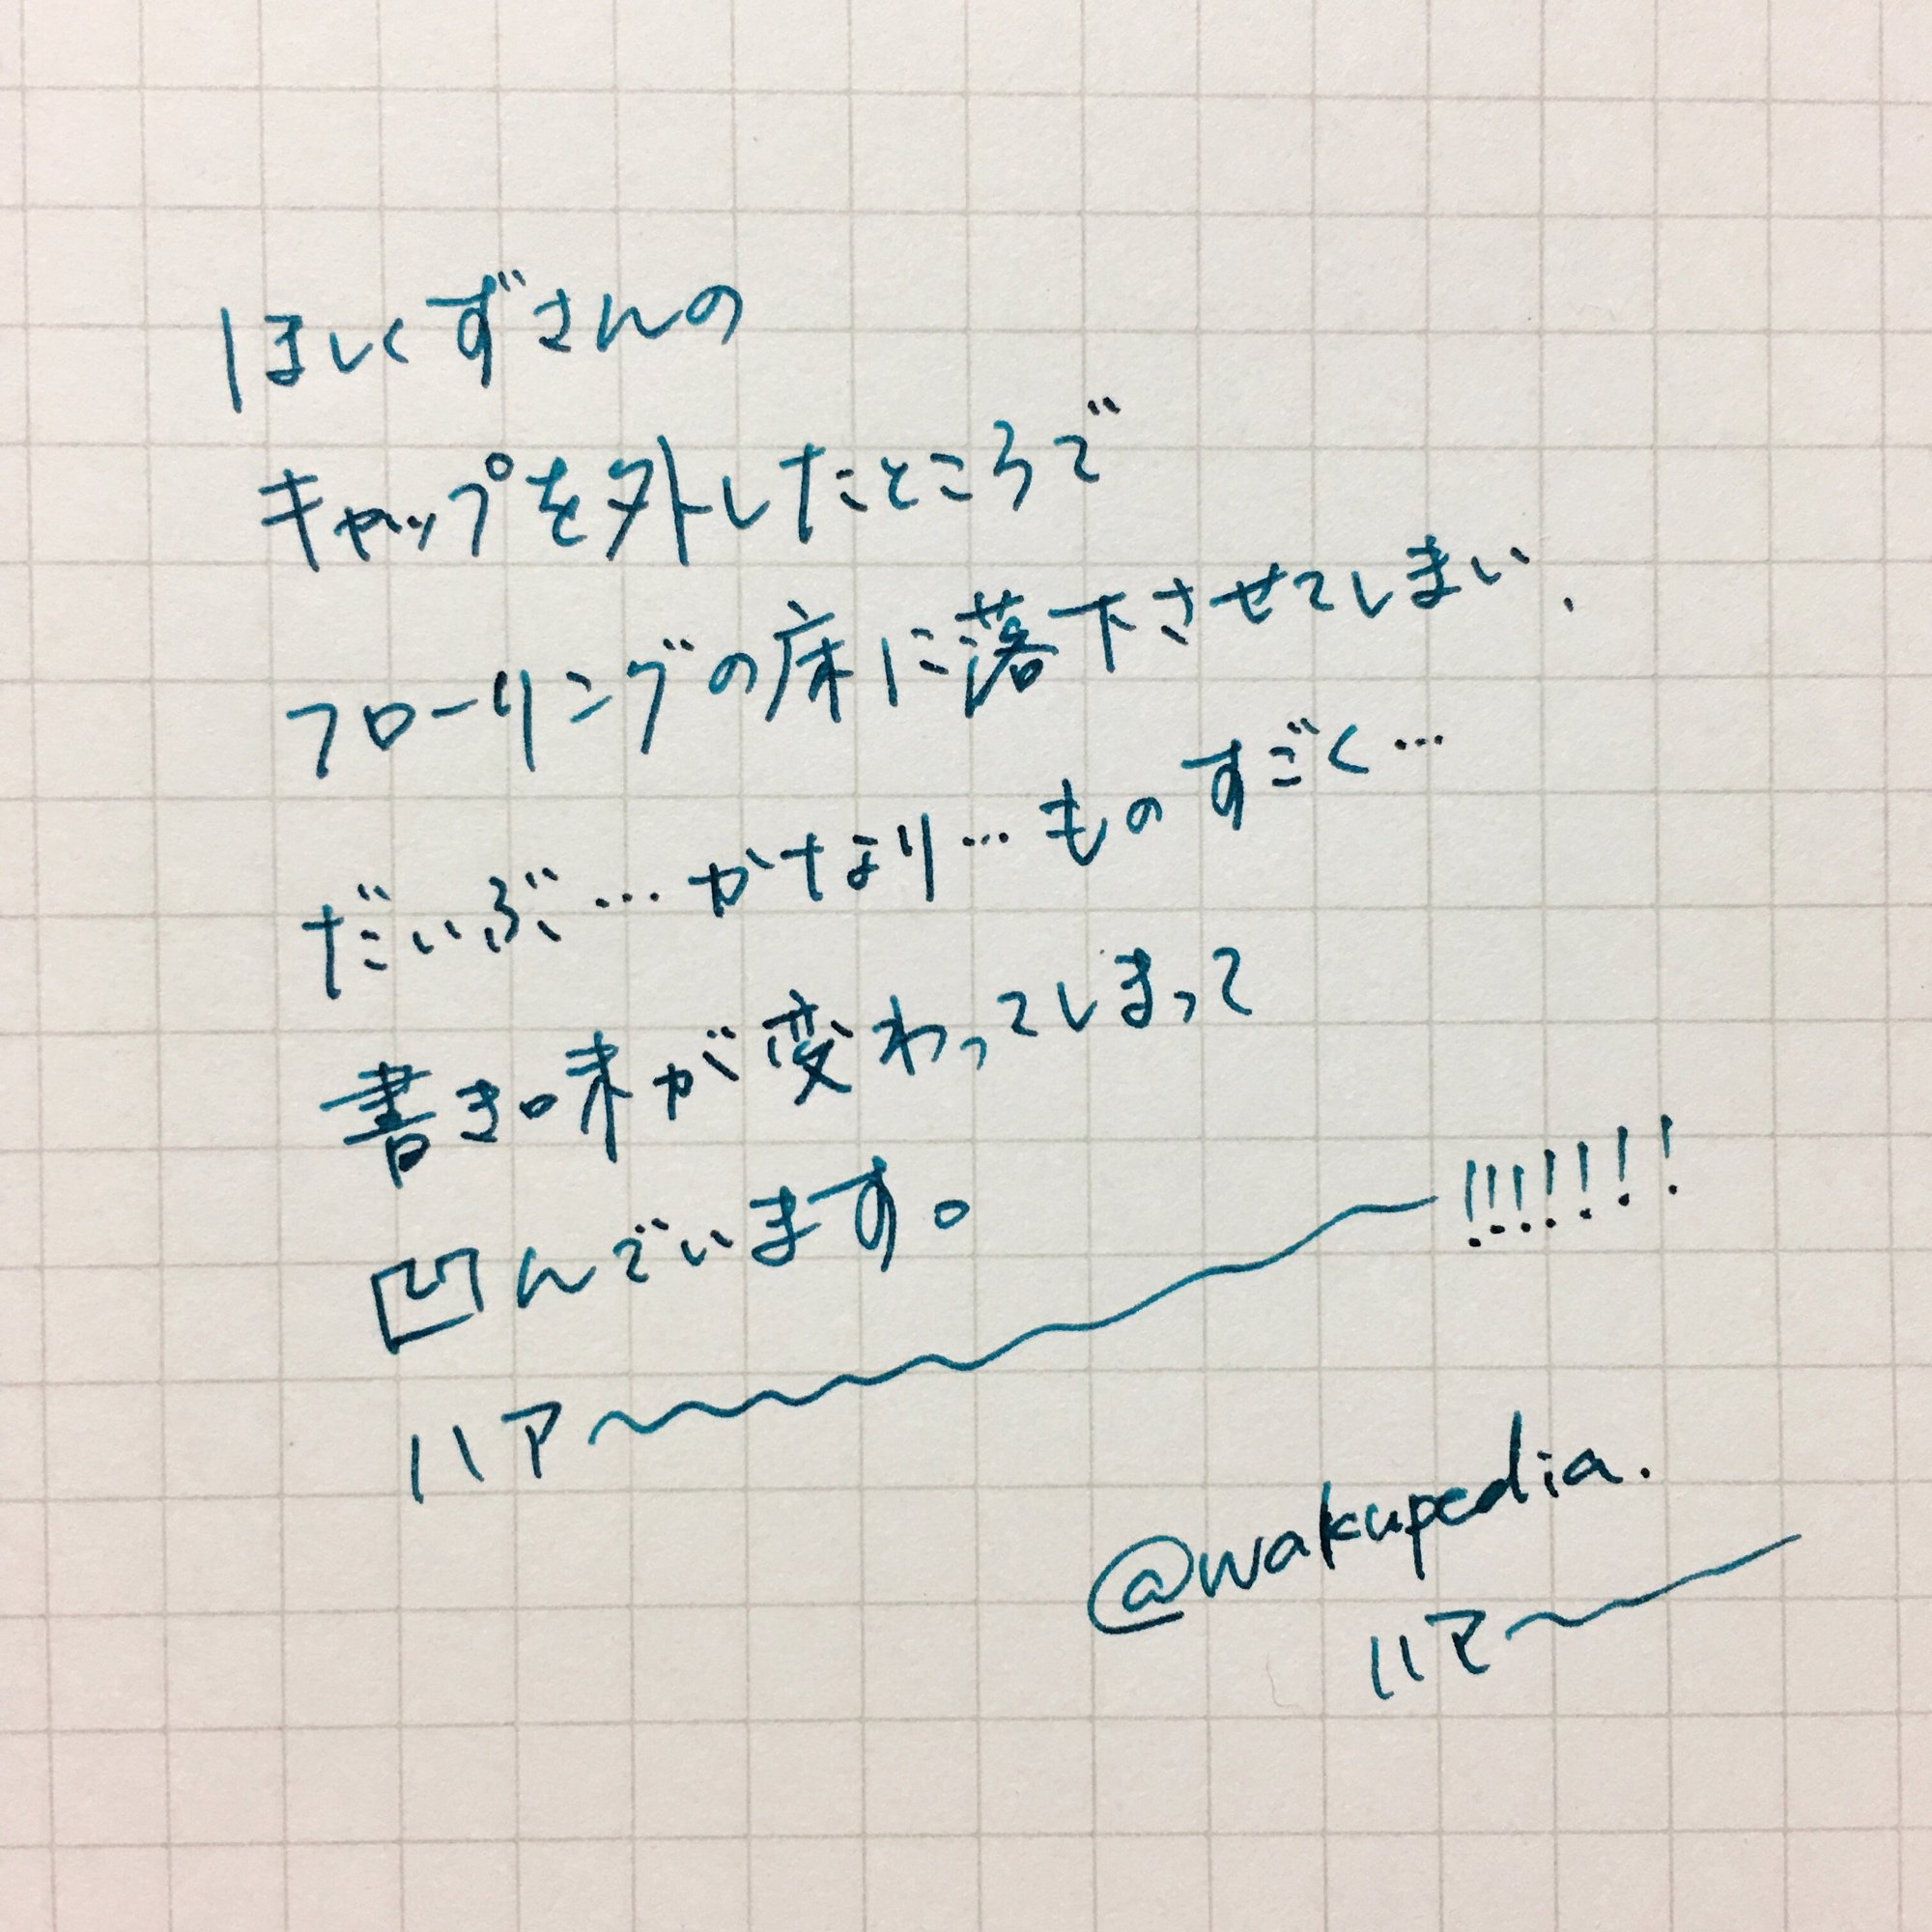 ほしくずさんの
キャップを外したところで
フローリングの床に落下させてしまい、
だいぶ…かなり…ものすごく…
書き味が変わってしまって
凹んでいます。
ハア〜〜〜〜〜〜!!!!!!!
@wakupedia.
ハア〜〜